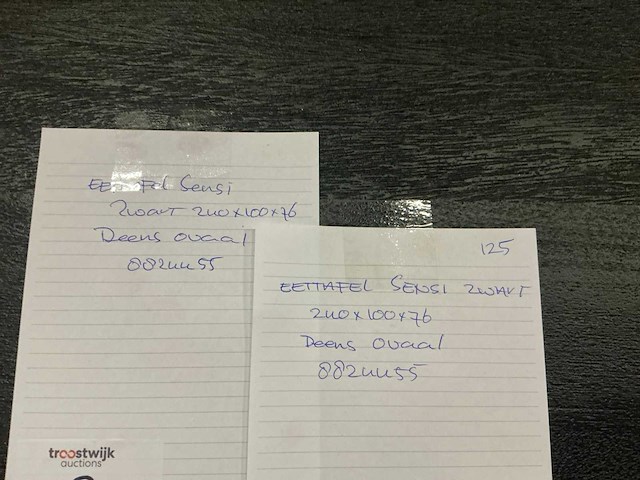 EETTAFEL Sensi
Zwart 240x100x76
Deens ovaal
8824455
troostwijk
auctions
125
EETTAFEL SENSI ZWART
240x100x76
Deens Ovaal
8824455